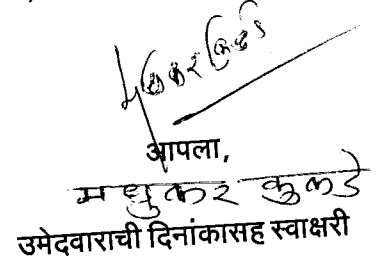 आपला,
मधुकर कुकडे
उमेदवाराची दिनांकासह स्वाक्षरी